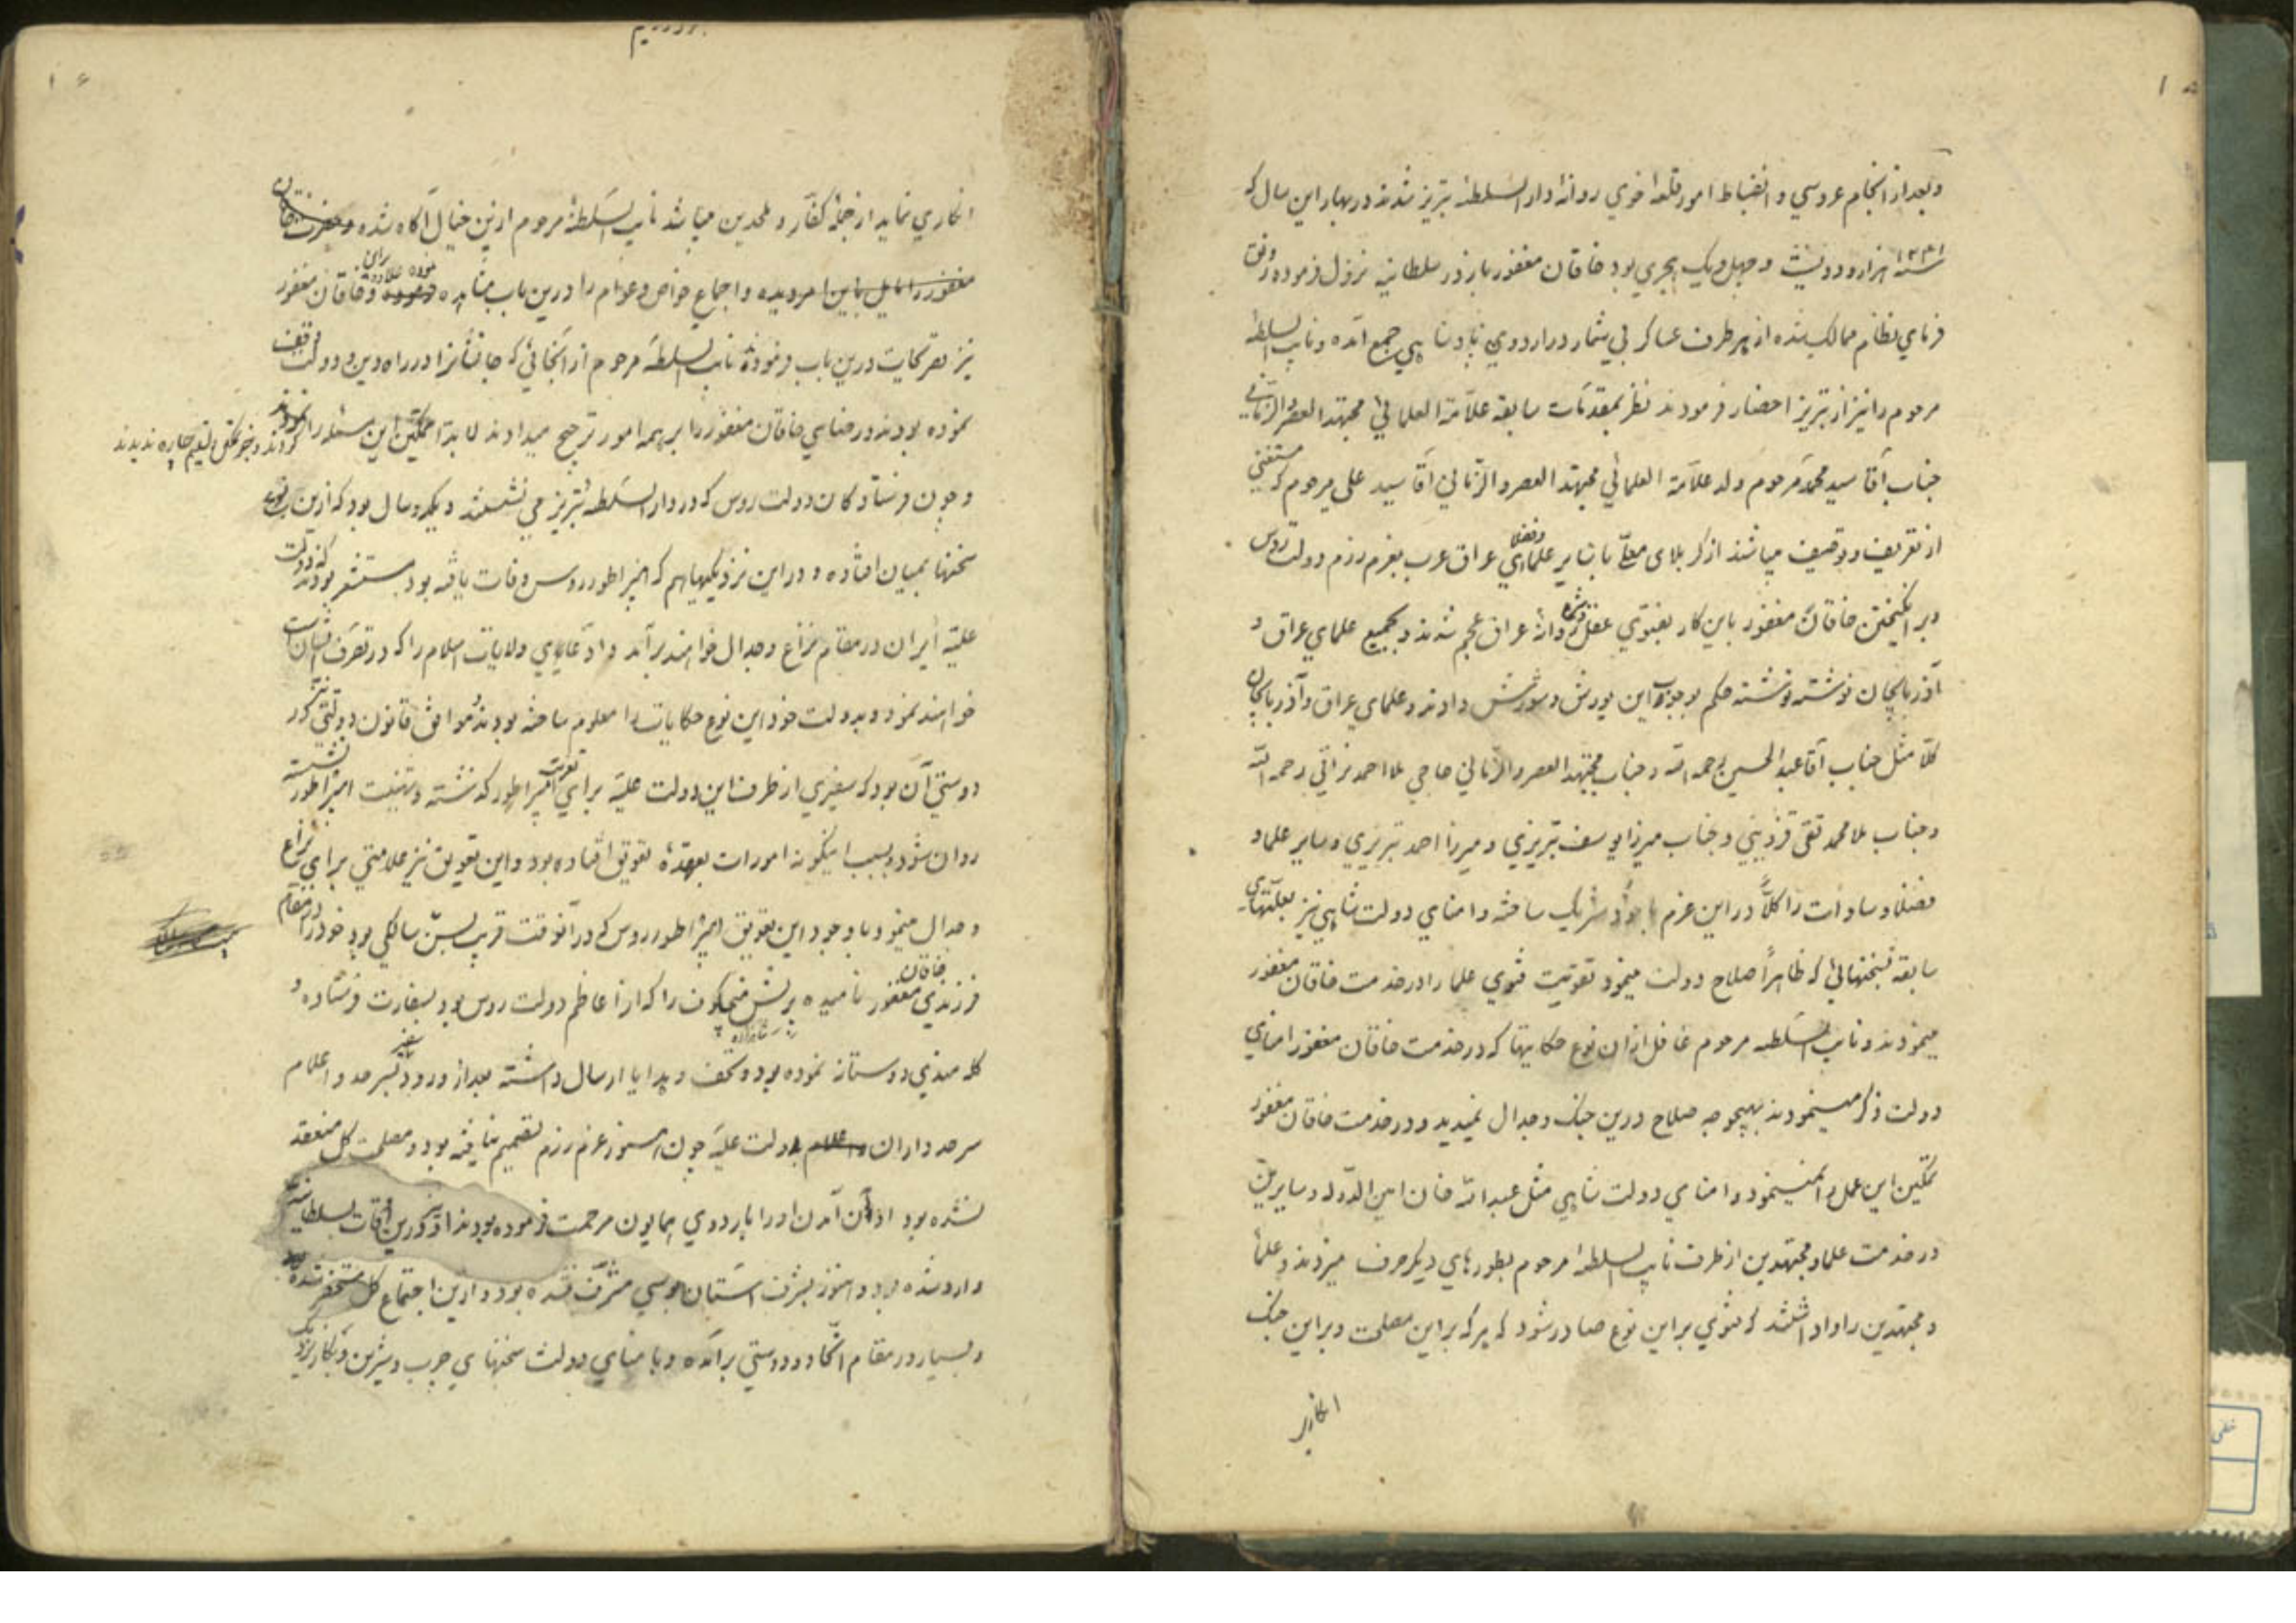 وبعد از انجام عروسي و انضباط امور قلعهٔ خوي روانهٔ دار السلطنهٔ تبريز شدند در بهار اين سال كه
سنه ۱۲۴۱ هزار و دويست و چهل و يك هجري بود خاقان مغفور باز در سلطانيه نزول فرموده رونق
فرماي نظام ممالك شده از هر طرف عساكر بي شمار در اردوي پادشاهي جمع آمده و نايب السلطنهٔ
مرحوم را نيز از تبريز احضار فرمودند نظر بمقدمات سابقه علامة العلمائي مجتهد العصر والزماني
جناب آقا سيد محمد مرحوم ولد علامة العلمائي مجتهد العصر والزماني آقا سيد علي مرحوم كه مستغني
از تعريف و توصيف ميباشد از كربلاي معلّى با ساير علماي و فضلا عراق عرب بعزم رزم دولت روس
و بر انگيختن خاقان مغفور باين كار بفتوي عقل روانهٔ عراق عجم شدند و بجميع علماي عراق و
آذربايجان نوشته نوشته حكم بوجوب اين يورش و شورش دادند و علماي عراق و آذربايجان
كلاً مثل جناب آقا عبد الحسين رحمه الله و جناب مجتهد العصر والزماني حاجي ملا احمد نراقي رحمه الله
و جناب ملا محمد تقي قزويني و جناب ميرزا يوسف تبريزي و ميرزا احمد تبريزي و ساير علما و
فضلا و سادات را كلاً در اين عزم با خود شريك ساخته و امناي دولت شاهي نيز بعلتهاي
سابقه بسخنهائي كه ظاهراً صلاح دولت مينمود تقويت فتوي علما را در خدمت خاقان مغفور
مينمودند و نايب السلطنه مرحوم غافل از اين نوع حكايتها كه در خدمت خاقان مغفور امناي
دولت ذكر مينمودند بهيچوجه صلاح درين جنگ و جدال نميديد و در خدمت خاقان مغفور
تمكين اين عمل را نمينمود و امناي دولت شاهي مثل عبد الله خان امين الدوله و سايرين
در خدمت علما و مجتهدين از طرف نايب السلطنهٔ مرحوم بطورهاي ديگر حرف ميزدند و علما
و مجتهدين را واداشتند كه فتوي بر اين نوع صادر شود كه هر كه بر اين مصلحت و بر اين جنگ
انكاري
انكاري نمايد از جملهٔ كفار و ملحدين ميباشد نايب السلطنهٔ مرحوم ازين خيال آگاه شده و حضرت خاقان
مغفور را مايل باين امر ديده و اجماع خواص و عوام را درين باب مشاهده نموده علاوه راي و خاقان مغفور
نيز تصريحات درين باب فرموده نايب السلطنه مرحوم از آنجائي كه جانفشانرا در راه دين و دولت وقف
نموده بودند و رضاي خاقان مغفور را بر همه امور ترجيح ميدادند لابد تمكين اين مسئله را
كردند و بجز تسليم چاره نديدند
و چون فرستادگان دولت روس كه در دار السلطنه تبريز مي نشستند و يكدو سال بود كه ازين نوع
سخنها بميان افتاده و در اين نزديكيها هم كه ايمپراطور روس وفات يافته بود مستشعر بودند كه دولت
عليّه ايران در مقام نزاع و جدال خواهند برآمد و ادعاي ولايات اسلام را كه در تصرف ايشان است
خواهند نمود و بدولت خود اين نوع حكايات را معلوم ساخته بودند و موافق قانون دولتي
دوستي آن بود كه سفيري از طرف اين دولت عليّه براي تعزيت ايمپراطور گذشته و تهنيت ايمپراطور نشسته
روان شود و بسبب اينگونه امورات بعهدهٔ تعويق افتاده بود و اين تعويق نيز علامتي براي نزاع
و جدال مينمود با وجود اين تعويق ايمپراطور روس كه در آنوقت قريب بسن سالگي بود خود را در مقام
فرزندي خاقان مغفور ناميده پرنس منچكوف را كه از اعاظم دولت روس بود بسفارت فرستاده و
گله مندي دوستانه نموده بود و تحف و هدايا ارسال داشته بعد از ورود سفير بسرحد و اعلام
سرحدداران دولت عليّه چون هنوز عزم رزم تصميم نيافته بود و مصلحت كل منعقد
نشده بود اذن آمدن او را باردوي همايون مرحمت فرموده بودند او نيز درين اوقات بسلطانيه
وارد شده بود و هنوز بشرف استان بوسي مشرف نشده بود و ازين اجتماع كل مستحضر شده
و بسيار در مقام اتحاد و دوستي برآمده و با امناي دولت سخنهاي چرب و شيرين